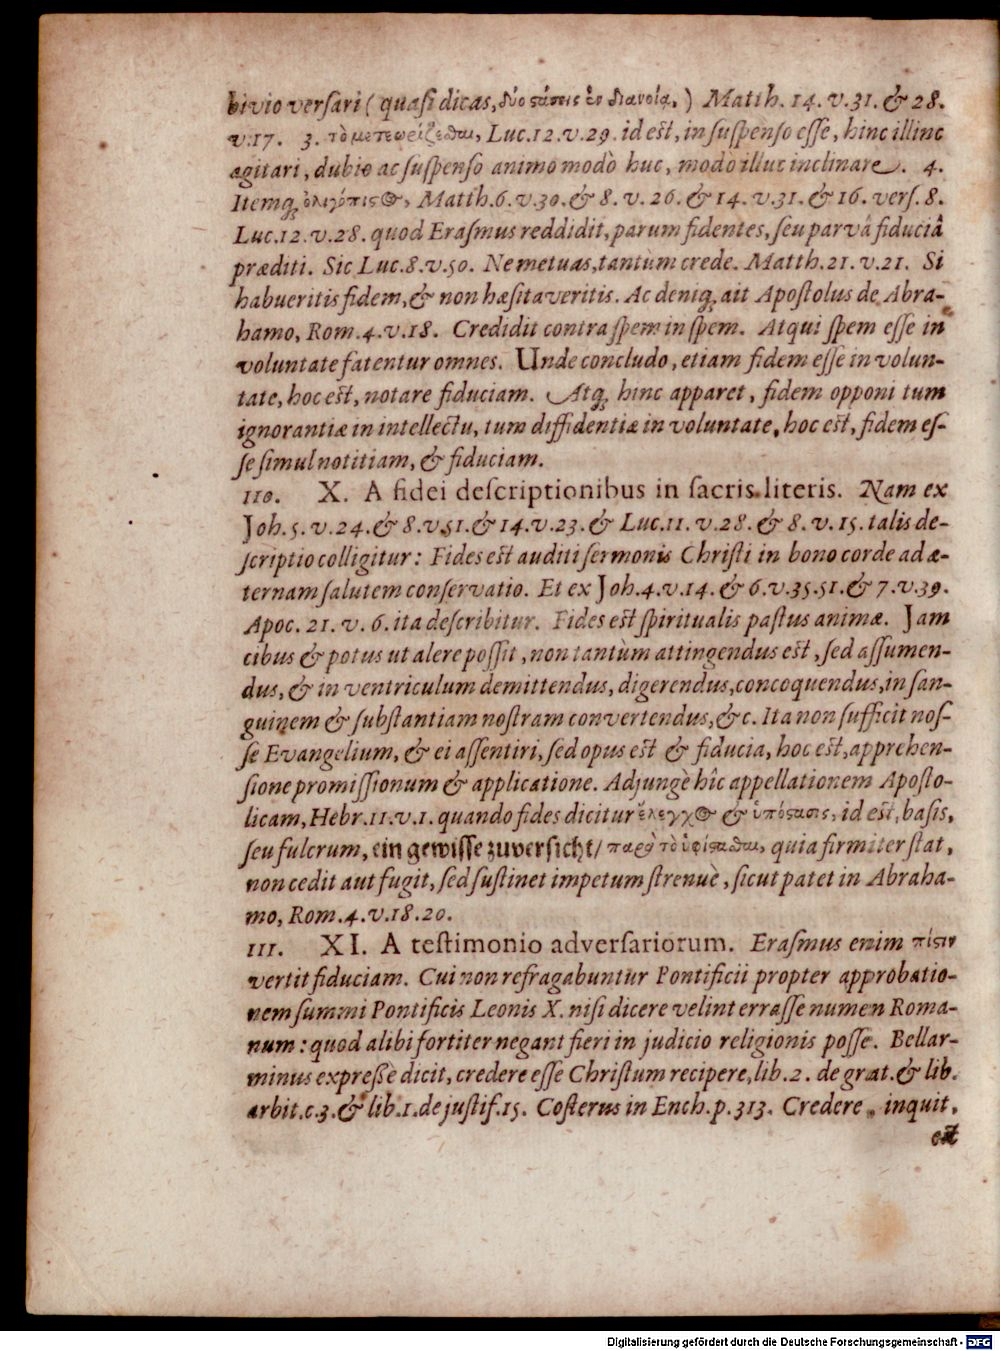 bivio versari (quasi dicas, δύο στάσεις ἐν διανοίᾳ,) Matth. 14. v. 31. & 28.
v. 17. 3. τὸ μετεωρίζεσθαι, Luc. 12. v. 29. id est, in suspenso esse, hinc illinc
agitari, dubio ac suspenso animo modò huc, modo illuc inclinare. 4.
Itemq; ὀλιγόπιστος, Matth. 6. v. 30. & 8. v. 26. & 14. v. 31. & 16. vers. 8.
Luc. 12. v. 28. quod Erasmus reddidit, parum fidentes, seu parvâ fiduciâ
præditi. Sic Luc. 8. v. 50. Ne metuas, tantùm crede. Matth. 21. v. 21. Si
habueritis fidem, & non hæsitaveritis. Ac deniq; ait Apostolus de Abra-
hamo, Rom. 4. v. 18. Credidit contra spem in spem. Atqui spem esse in
voluntate fatentur omnes. Unde concludo, etiam fidem esse in volun-
tate, hoc est, notare fiduciam. Atq; hinc apparet, fidem opponi tum
ignorantiæ in intellectu, tum diffidentiæ in voluntate, hoc est, fidem es-
se simul notitiam, & fiduciam.
110. X. A fidei descriptionibus in sacris literis. Nam ex
Joh. 5. v. 24. & 8. v. 51. & 14. v. 23. & Luc. 11. v. 28. & 8. v. 15. talis de-
scriptio colligitur: Fides est auditi sermonis Christi in bono corde ad æ-
ternam salutem conservatio. Et ex Joh. 4. v. 14. & 6. v. 35. 51. & 7. v. 39.
Apoc. 21. v. 6. ita describitur. Fides est spiritualis pastus animæ. Jam
cibus & potus ut alere possit, non tantùm attingendus est, sed assumen-
dus, & in ventriculum demittendus, digerendus, concoquendus, in san-
guinem & substantiam nostram convertendus, &c. Ita non sufficit nos-
se Evangelium, & ei assentiri, sed opus est & fiducia, hoc est, apprehen-
sione promissionum & applicatione. Adjunge hîc appellationem Aposto-
licam, Hebr. 11. v. 1. quando fides dicitur ἔλεγχος & ὑπόστασις, id est, basis,
seu fulcrum, ein gewisse zuversicht/ παρὰ τὸ ὑφίστασθαι, quia firmiter stat,
non cedit aut fugit, sed sustinet impetum strenuè, sicut patet in Abraha-
mo, Rom. 4. v. 18. 20.
111. XI. A testimonio adversariorum. Erasmus enim πίστιν
vertit fiduciam. Cui non refragabuntur Pontificii propter approbatio-
nem summi Pontificis Leonis X. nisi dicere velint errasse numen Roma-
num: quod alibi fortiter negant fieri in judicio religionis posse. Bellar-
minus expresse dicit, credere esse Christum recipere, lib. 2. de grat. & lib.
arbit. c. 3. & lib. 1. de justif. 15. Costerus in Ench. p. 313. Credere, inquit,
est
Digitalisierung gefördert durch die Deutsche Forschungsgemeinschaft - DFG